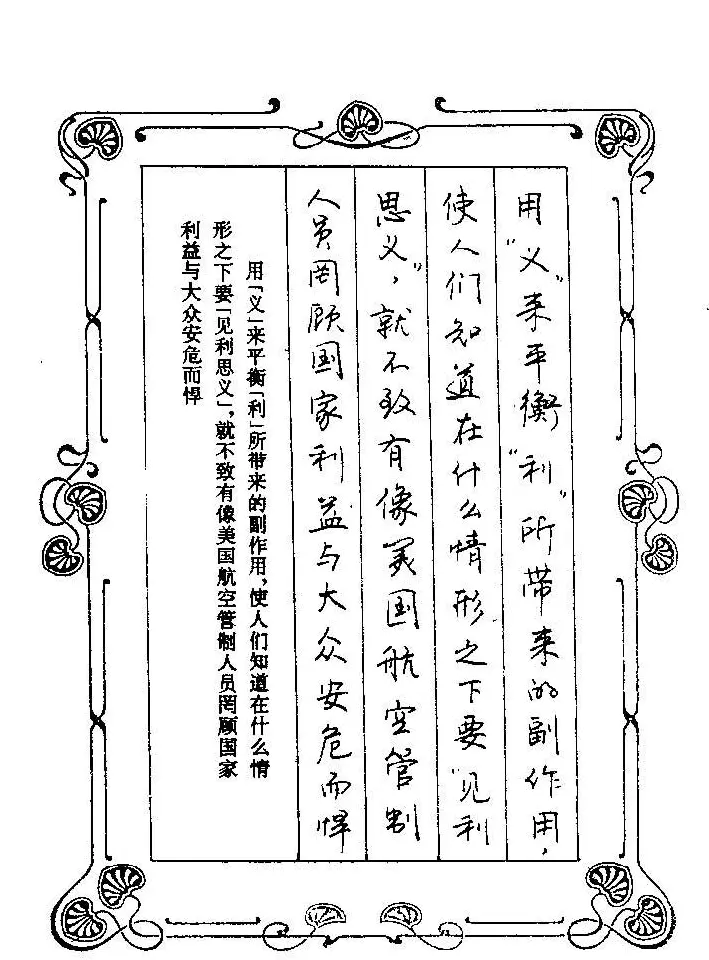 用“义”来平衡“利”所带来的副作用，
使人们知道在什么情形之下要“见利
思义”，就不致有像美国航空管制
人员罔顾国家利益与大众安危而悍
用「义」来平衡「利」所带来的副作用，使人们知道在什么情
形之下要「见利思义」，就不致有像美国航空管制人员罔顾国家
利益与大众安危而悍